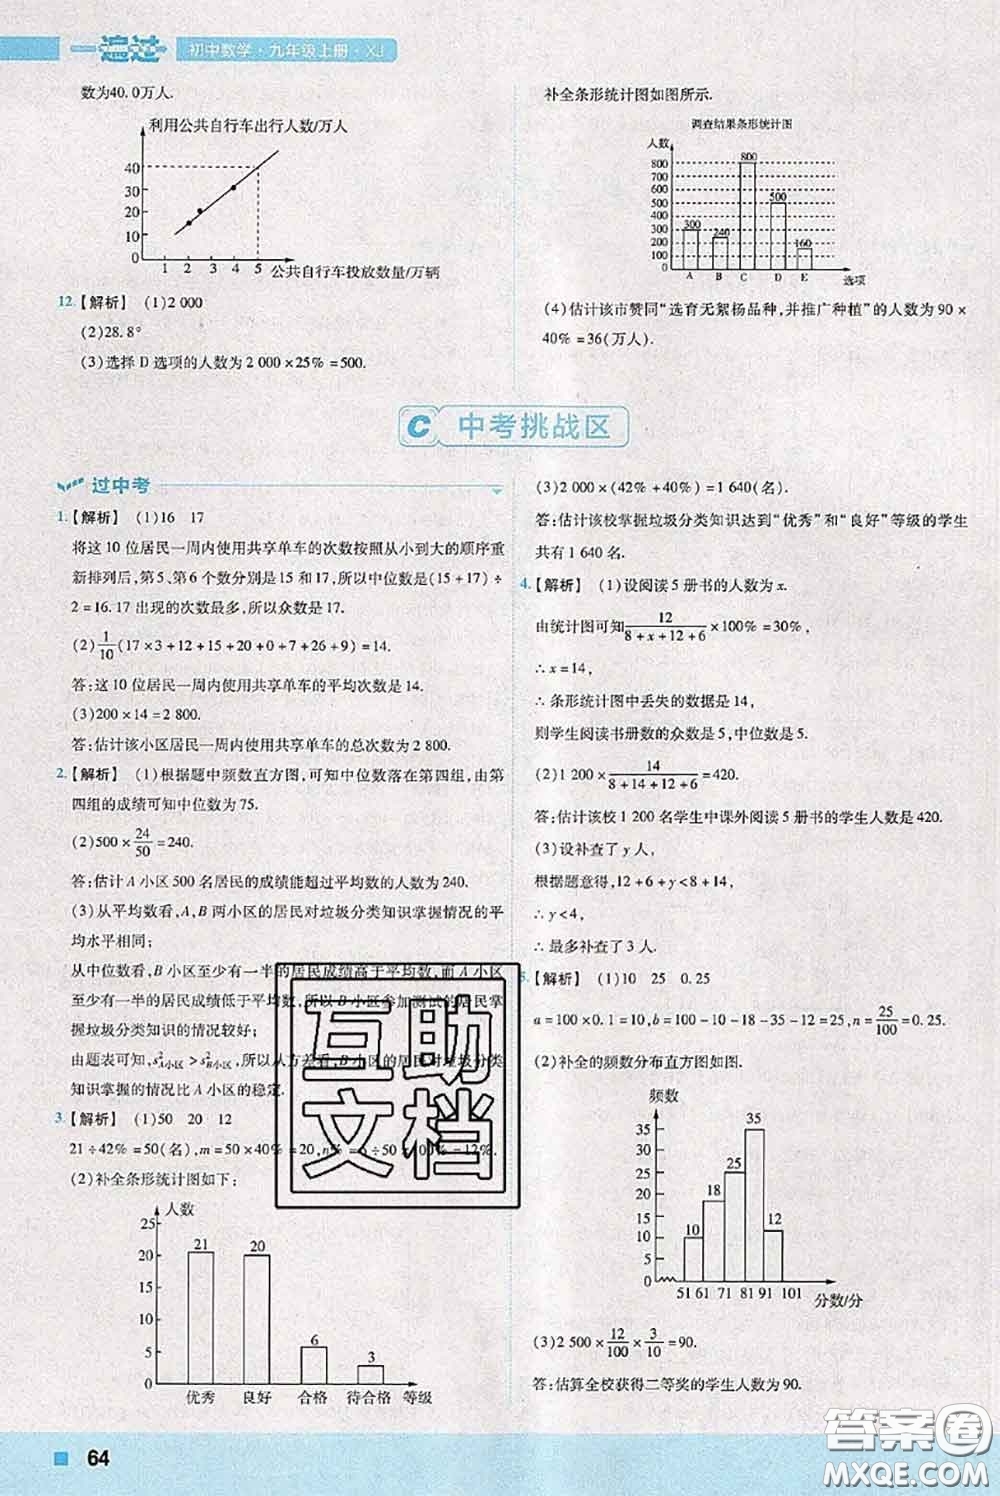 一遍过 初中数学·九年级上册·XJ
数为40.0万人.
利用公共自行车出行人数/万人
40
30
20
10
0
1 2 3 4 5 公共自行车投放数量/万辆
12.【解析】 (1)2 000
(2)28.8°
(3)选择 D 选项的人数为 2 000×25%=500.
补全条形统计图如图所示.
调查结果条形统计图
人数
800
700
600
500
400
300
200
100
0
300 240 800 500 160
A B C D E 选项
(4)估计该市赞同“选育无絮杨品种,并推广种植”的人数为 90×
40%=36(万人).
C 中考挑战区
过中考
1.【解析】 (1)16 17
将这 10 位居民一周内使用共享单车的次数按照从小到大的顺序重
新排列后,第 5、第 6 个数分别是 15 和 17,所以中位数是(15+17)÷
2=16.17 出现的次数最多,所以众数是 17.
(2)1/10(17×3+12+15+20+0+7+26+9)=14.
答:这 10 位居民一周内使用共享单车的平均次数是 14.
(3)200×14=2 800.
答:估计该小区居民一周内使用共享单车的总次数为 2 800.
2.【解析】 (1)根据题中频数直方图,可知中位数落在第四组,由第
四组的成绩可知中位数为 75.
(2)500×24/50=240.
答:估计 A 小区 500 名居民的成绩能超过平均数的人数为 240.
(3)从平均数看,A,B 两小区的居民对垃圾分类知识掌握情况的平
均水平相同;
从中位数看,B 小区至少有一半的居民成绩高于平均数,而 A 小区
至少有一半的居民成绩低于平均数,所以 B 小区参加测试的居民掌
握垃圾分类知识的情况较好;
由题表可知,s²A小区>s²B小区,所以从方差看,B 小区的居民对垃圾分类
知识掌握的情况比 A 小区的稳定.
3.【解析】 (1)50 20 12
21÷42%=50(名),m=50×40%=20,n%=6÷50×100%=12%.
(2)补全条形统计图如下:
人数
25
20
15
10
5
0
21 20 6 3
优秀 良好 合格 待合格 等级
(3)2 000×(42%+40%)=1 640(名).
答:估计该校掌握垃圾分类知识达到“优秀”和“良好”等级的学生
共有 1 640 名.
4.【解析】 (1)设阅读 5 册书的人数为 x.
由统计图可知12/(8+x+12+6)×100%=30%,
∴x=14,
∴条形统计图中丢失的数据是 14,
则学生阅读书册数的众数是 5,中位数是 5.
(2)1 200×14/(8+14+12+6)=420.
答:估计该校 1 200 名学生中课外阅读 5 册书的学生人数是 420.
(3)设补查了 y 人,
根据题意得,12+6+y<8+14,
∴y<4,
∴最多补查了 3 人.
5.【解析】 (1)10 25 0.25
a=100×0.1=10,b=100-10-18-35-12=25,n=25/100=0.25.
(2)补全的频数分布直方图如图.
频数
35
30
25
20
15
10
5
0
10 18 25 35 12
51 61 71 81 91 101 分数/分
(3)2 500×12/100×3/10=90.
答:估算全校获得二等奖的学生人数为 90.
互助
文档
64
答案圈
MXQE.COM